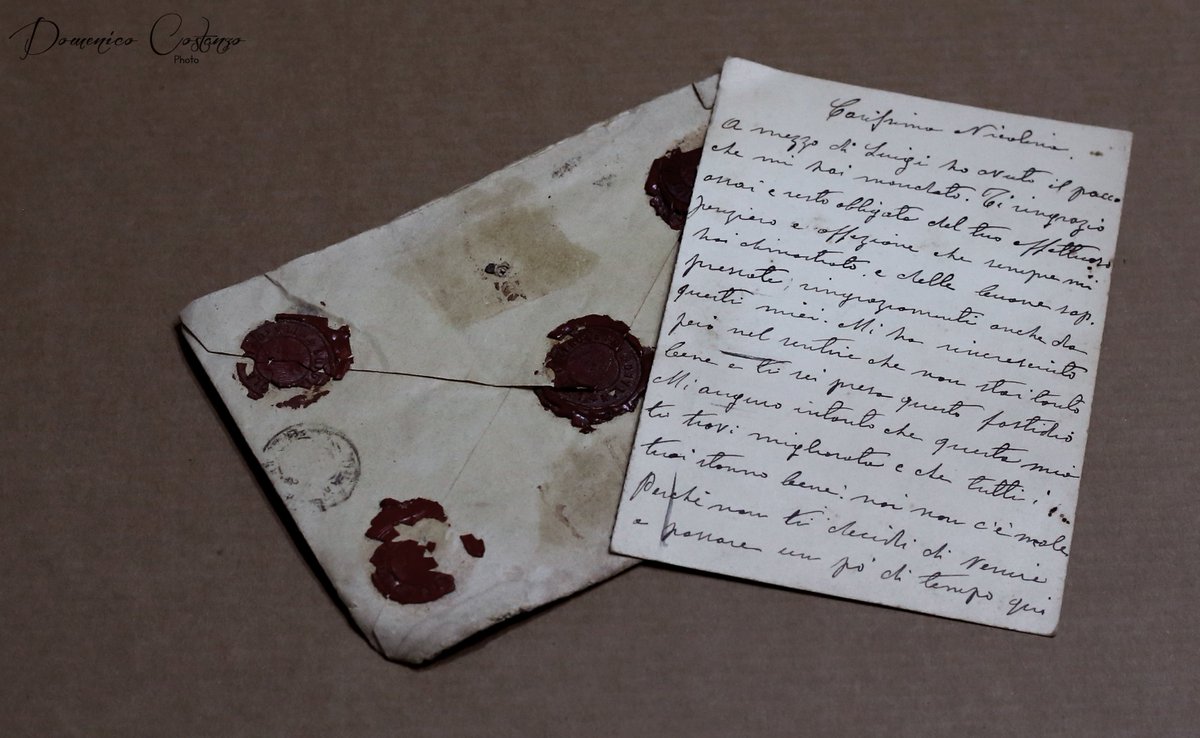 Domenico Costanzo
Photo
Carissima Nicolina.
A mezzo di Luigi ho avuto il pacco
che mi hai mandato. Ti ringrazio
assai e resto obbligata del tuo affettuoso
pensiero e affezione che sempre mi
hai dimostrato. e delle buone sap.
pressate; ringraziamenti anche da
questi miei. Mi ha rincresciuto
però nel sentire che non stai tanto
bene e ti sei presa questo fastidio
Mi auguro intanto che questa mia
ti trovi migliorata e che tutti i
tuoi stanno bene; noi non c'è male
Perché non ti decidi di venire
a passare un pò di tempo qui